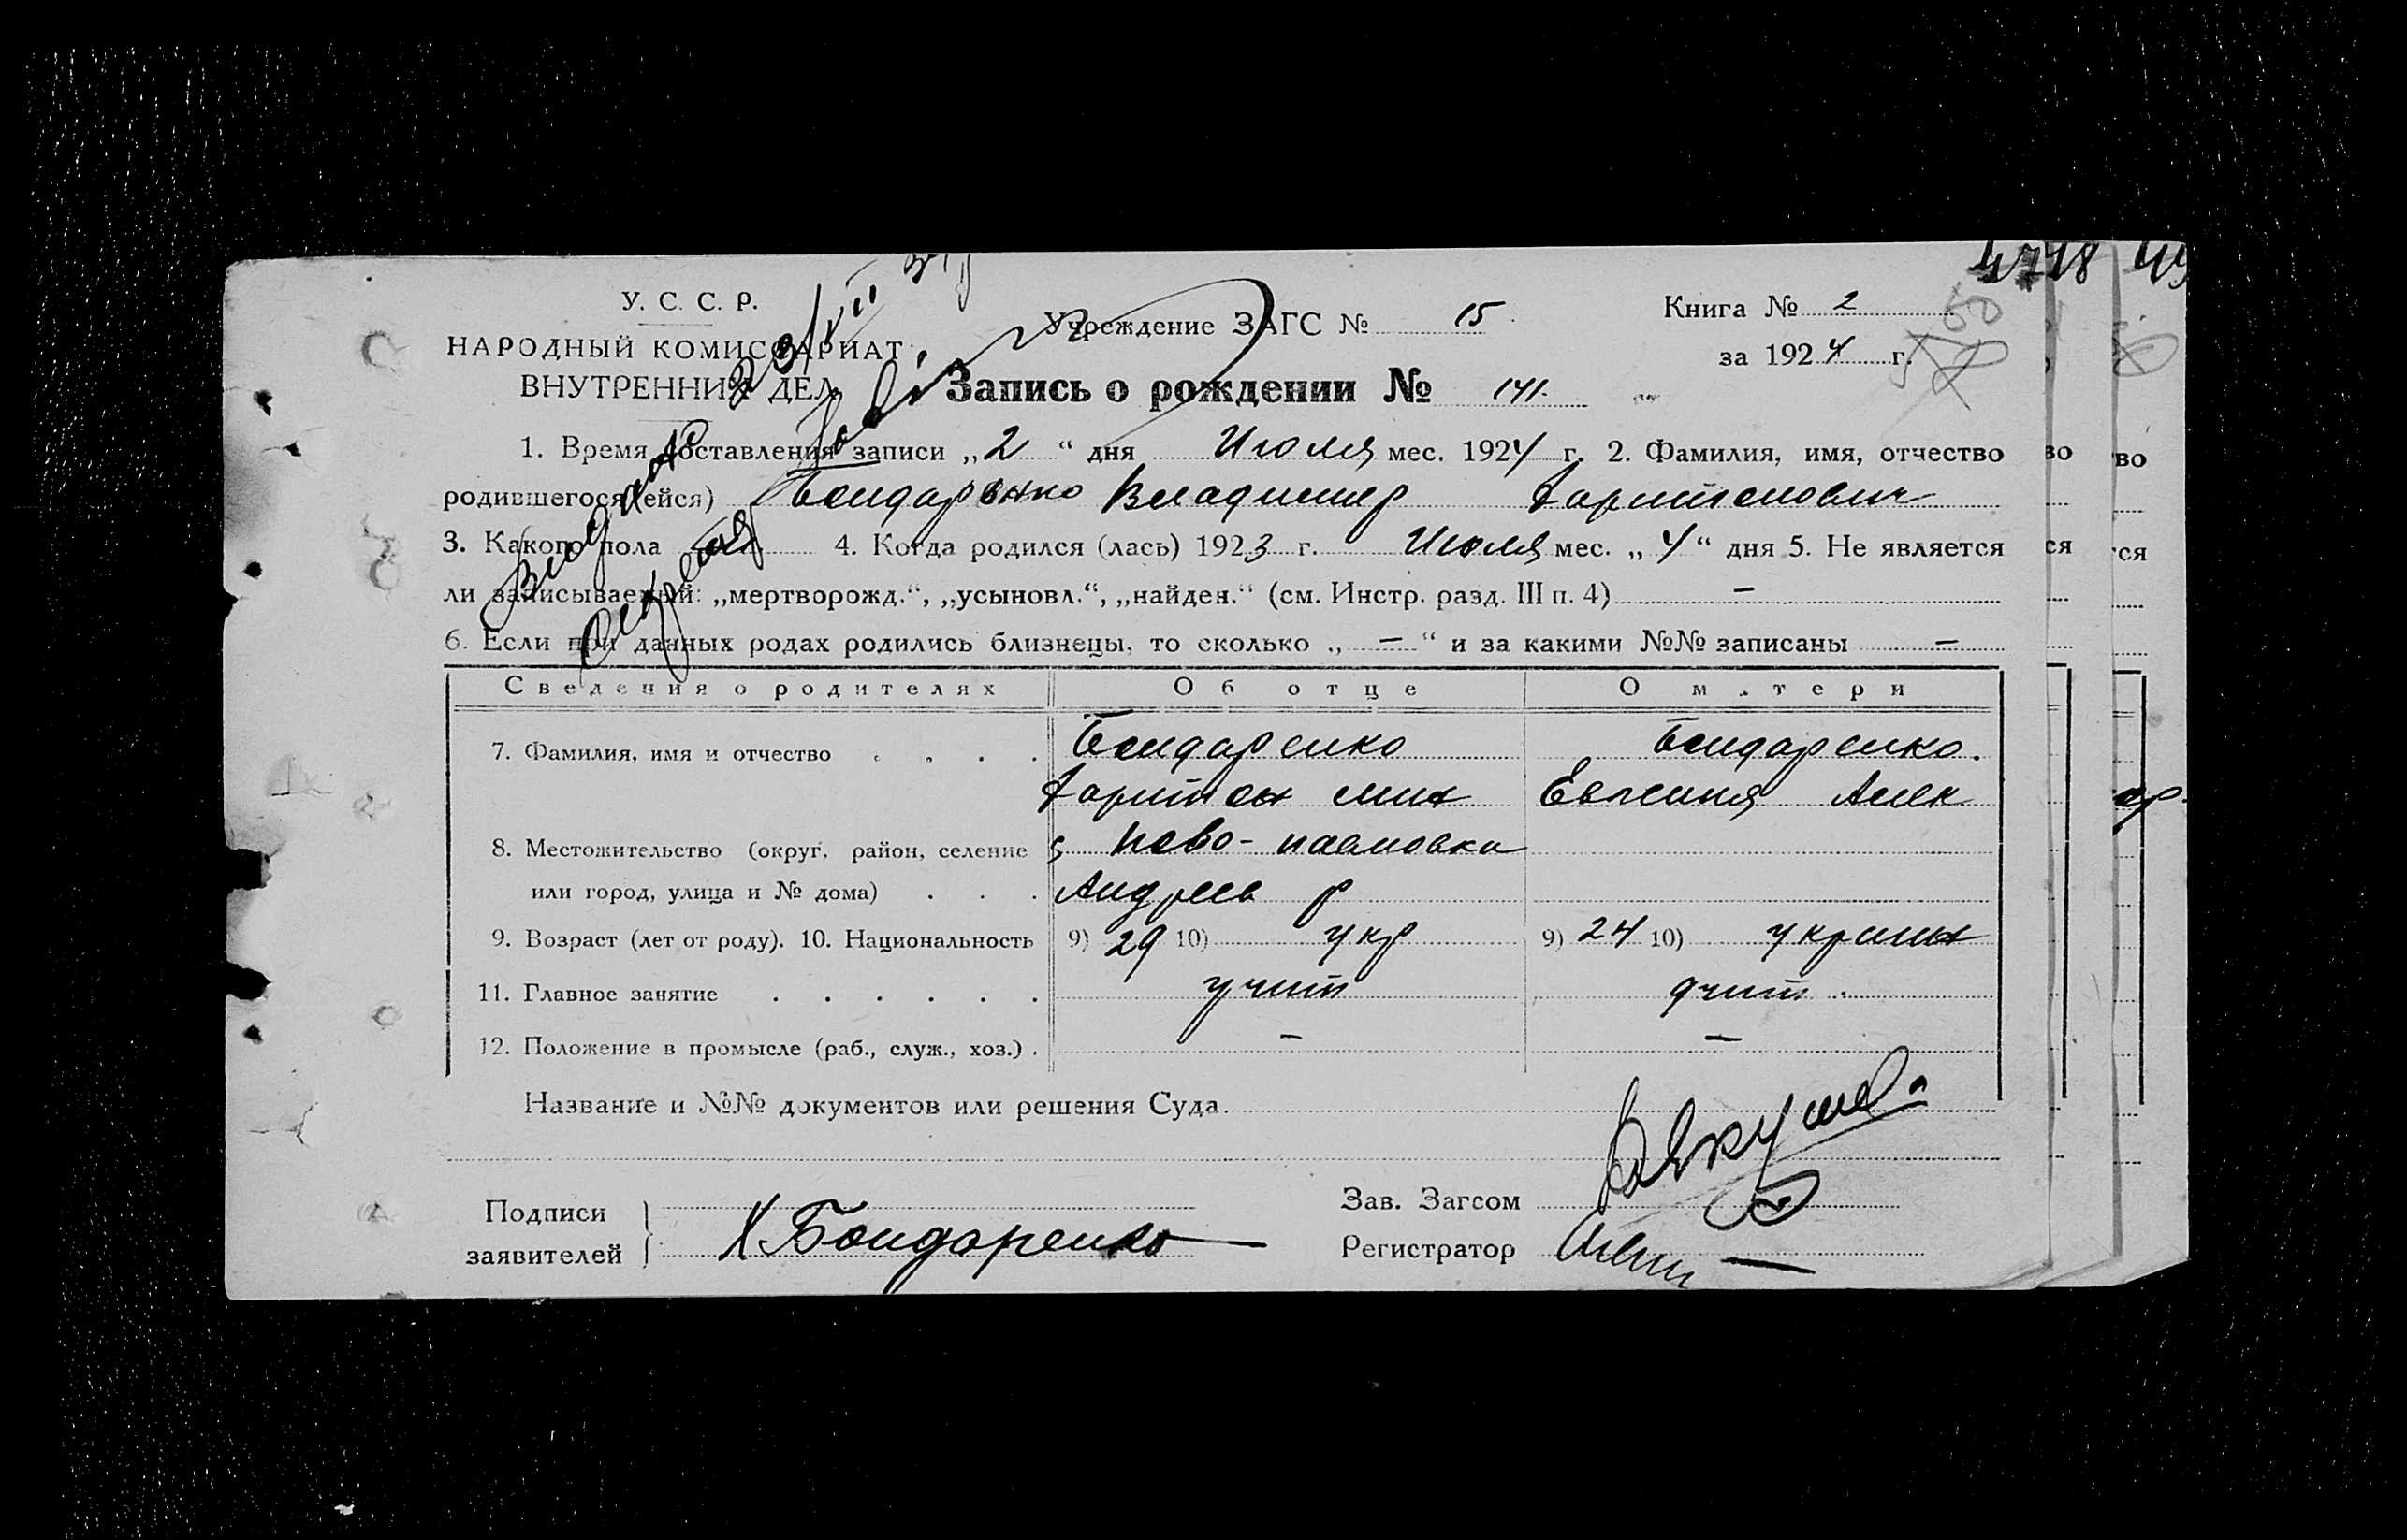 4748
У. С. С. Р.
НАРОДНЫЙ КОМИССАРИАТ
ВНУТРЕННИХ ДЕЛ
Учреждение ЗАГС № 15
Книга № 2
за 1924 г.
Запись о рождении № 141.
1. Время составления записи „2“ дня Июля мес. 1924 г. 2. Фамилия, имя, отчество
родившегося (ейся) Бондаренко Владимир Харитонович
3. Какого пола 4. Когда родился (лась) 1923 г. Июля мес. „4“ дня 5. Не является
ли записываемый: „мертворожд.“, „усыновл.“, „найден.“ (см. Инстр. разд. III п. 4) –
6. Если при данных родах родились близнецы, то сколько „ – “ и за какими №№ записаны –
Сведения о родителях Об отце О матери
7. Фамилия, имя и отчество . . . . Бондаренко Бондаренко.
Харитон Мих Евгения Алек
8. Местожительство (округ, район, селение с Ново-павловка
или город, улица и № дома) . . . Андреев р
9. Возраст (лет от роду). 10. Национальность 9) 29 10) укр 9) 24 10) украин
11. Главное занятие . . . . . . учит учит.
12. Положение в промысле (раб., служ., хоз.) . – –
Название и №№ документов или решения Суда
Подписи
заявителей Х Бондаренко
Зав. Загсом
Регистратор